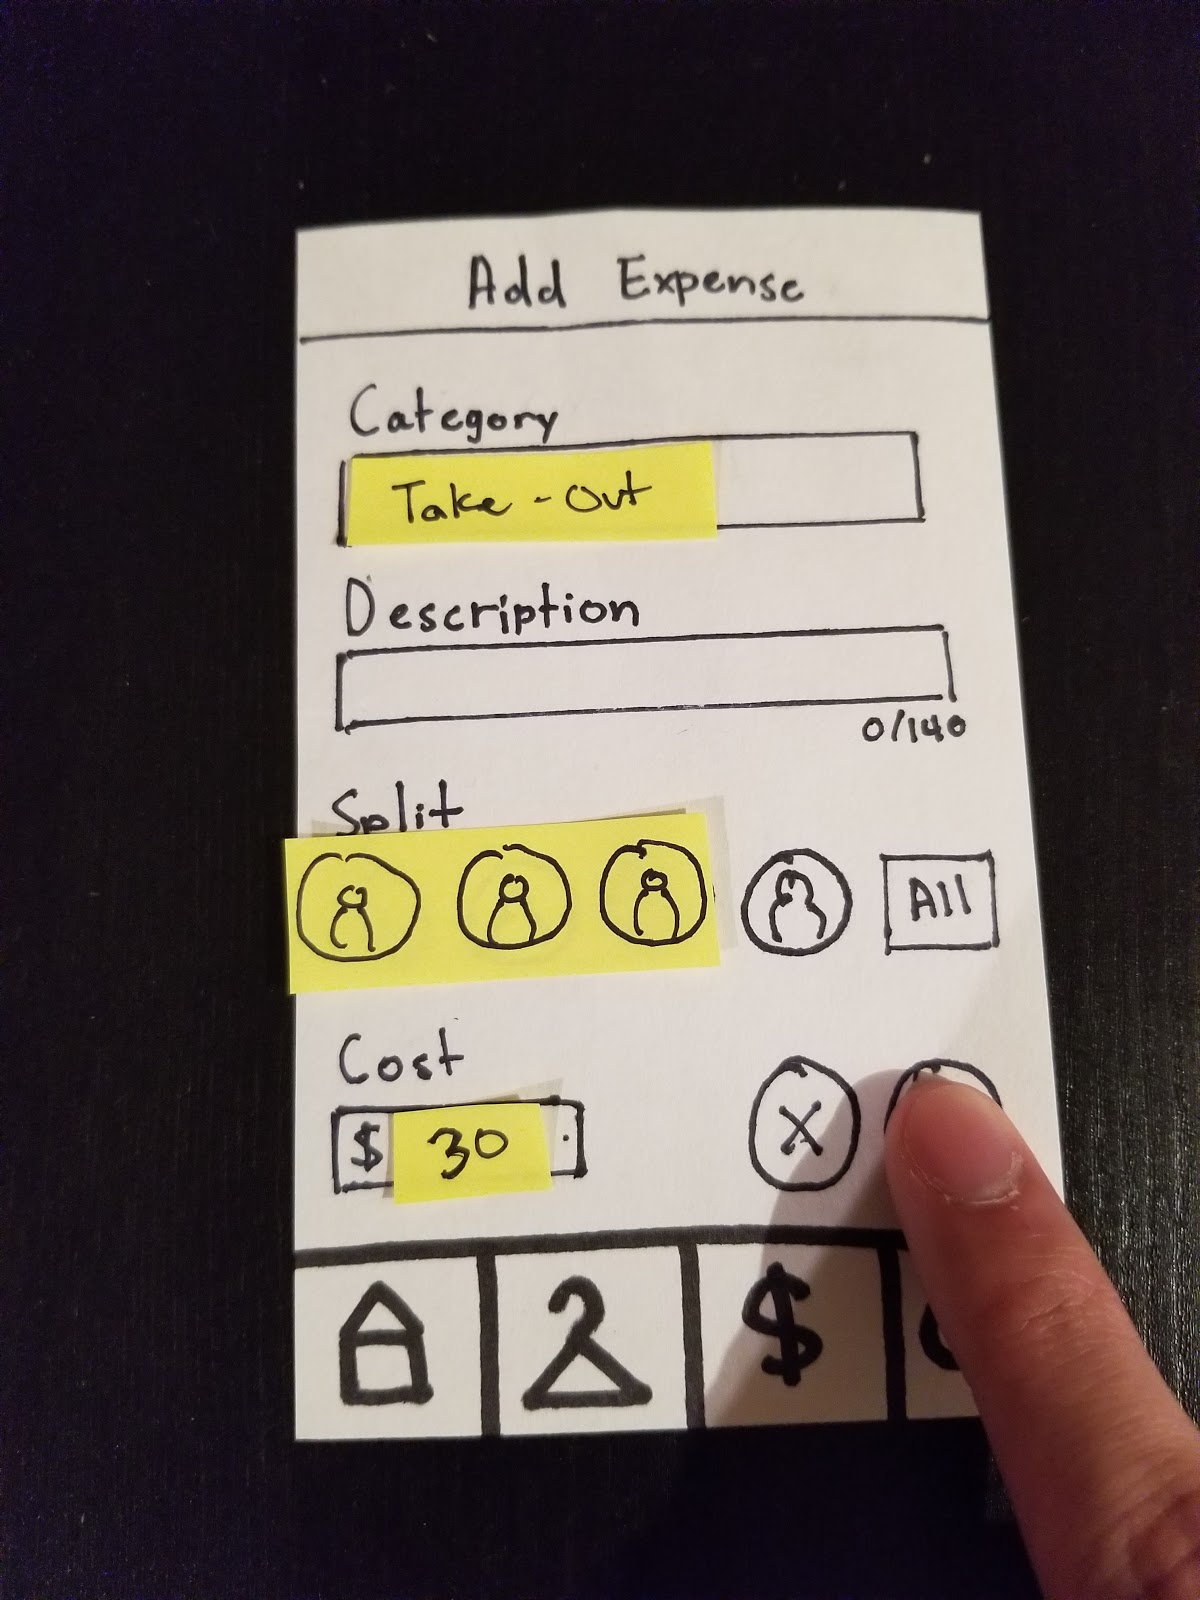 Add Expense
Category
Take-Out
Description
0/140
Split
All
Cost
$ 30 .
X
$